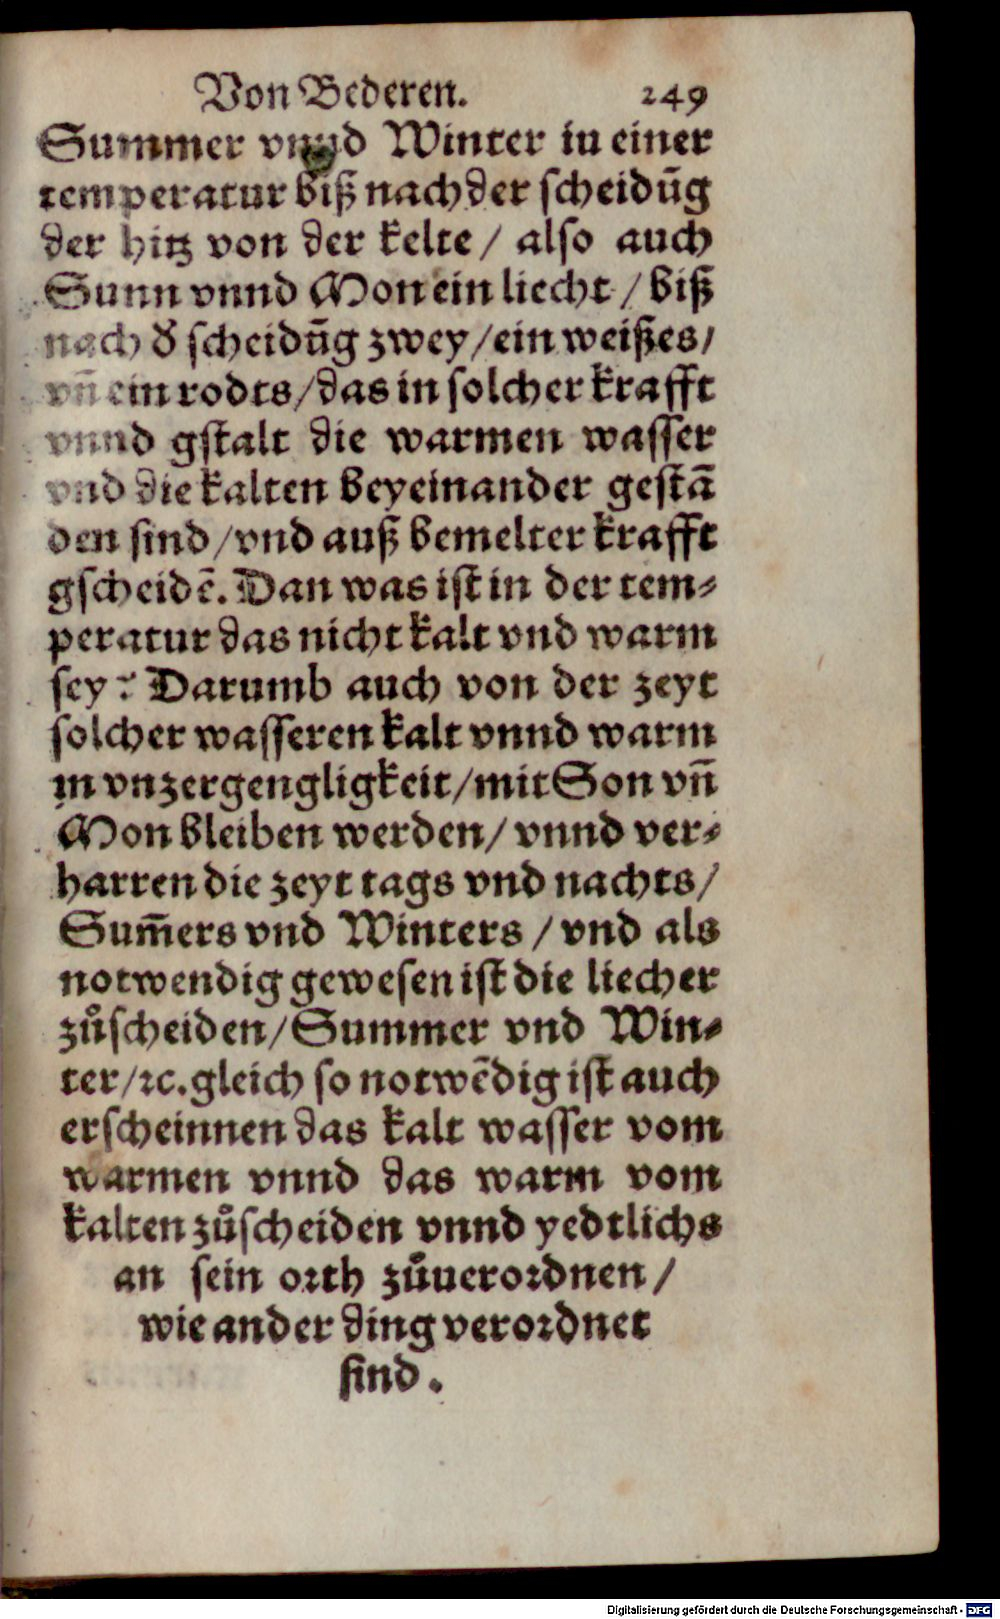 Von Bederen. 249
Summer vnnd Winter in einer
temperatur biß nach der scheidūg
der hitz von der kelte / also auch
Sunn vnnd Mon ein liecht / biß
nach d̕ scheidūg zwey / ein weißes /
vñ ein rodts / das in solcher krafft
vnnd gstalt die warmen wasser
vnd die kalten beyeinander gestā
den sind / vnd auß bemelter krafft
gscheidē. Dan was ist in der tem⸗
peratur das nicht kalt vnd warm
sey? Darumb auch von der zeyt
solcher wasseren kalt vnnd warm
in vnzergengligkeit / mit Son vñ
Mon bleiben werden / vnnd ver⸗
harren die zeyt tags vnd nachts /
Sum̄ers vnd Winters / vnd als
notwendig gewesen ist die liecher
zůscheiden / Summer vnd Win⸗
ter / ꝛc. gleich so notwēdig ist auch
erscheinnen das kalt wasser vom
warmen vnnd das warm vom
kalten zůscheiden vnnd yedtlichs
an sein orth zůuerordnen /
wie ander ding verordnet
sind.
Digitalisierung gefördert durch die Deutsche Forschungsgemeinschaft - DFG